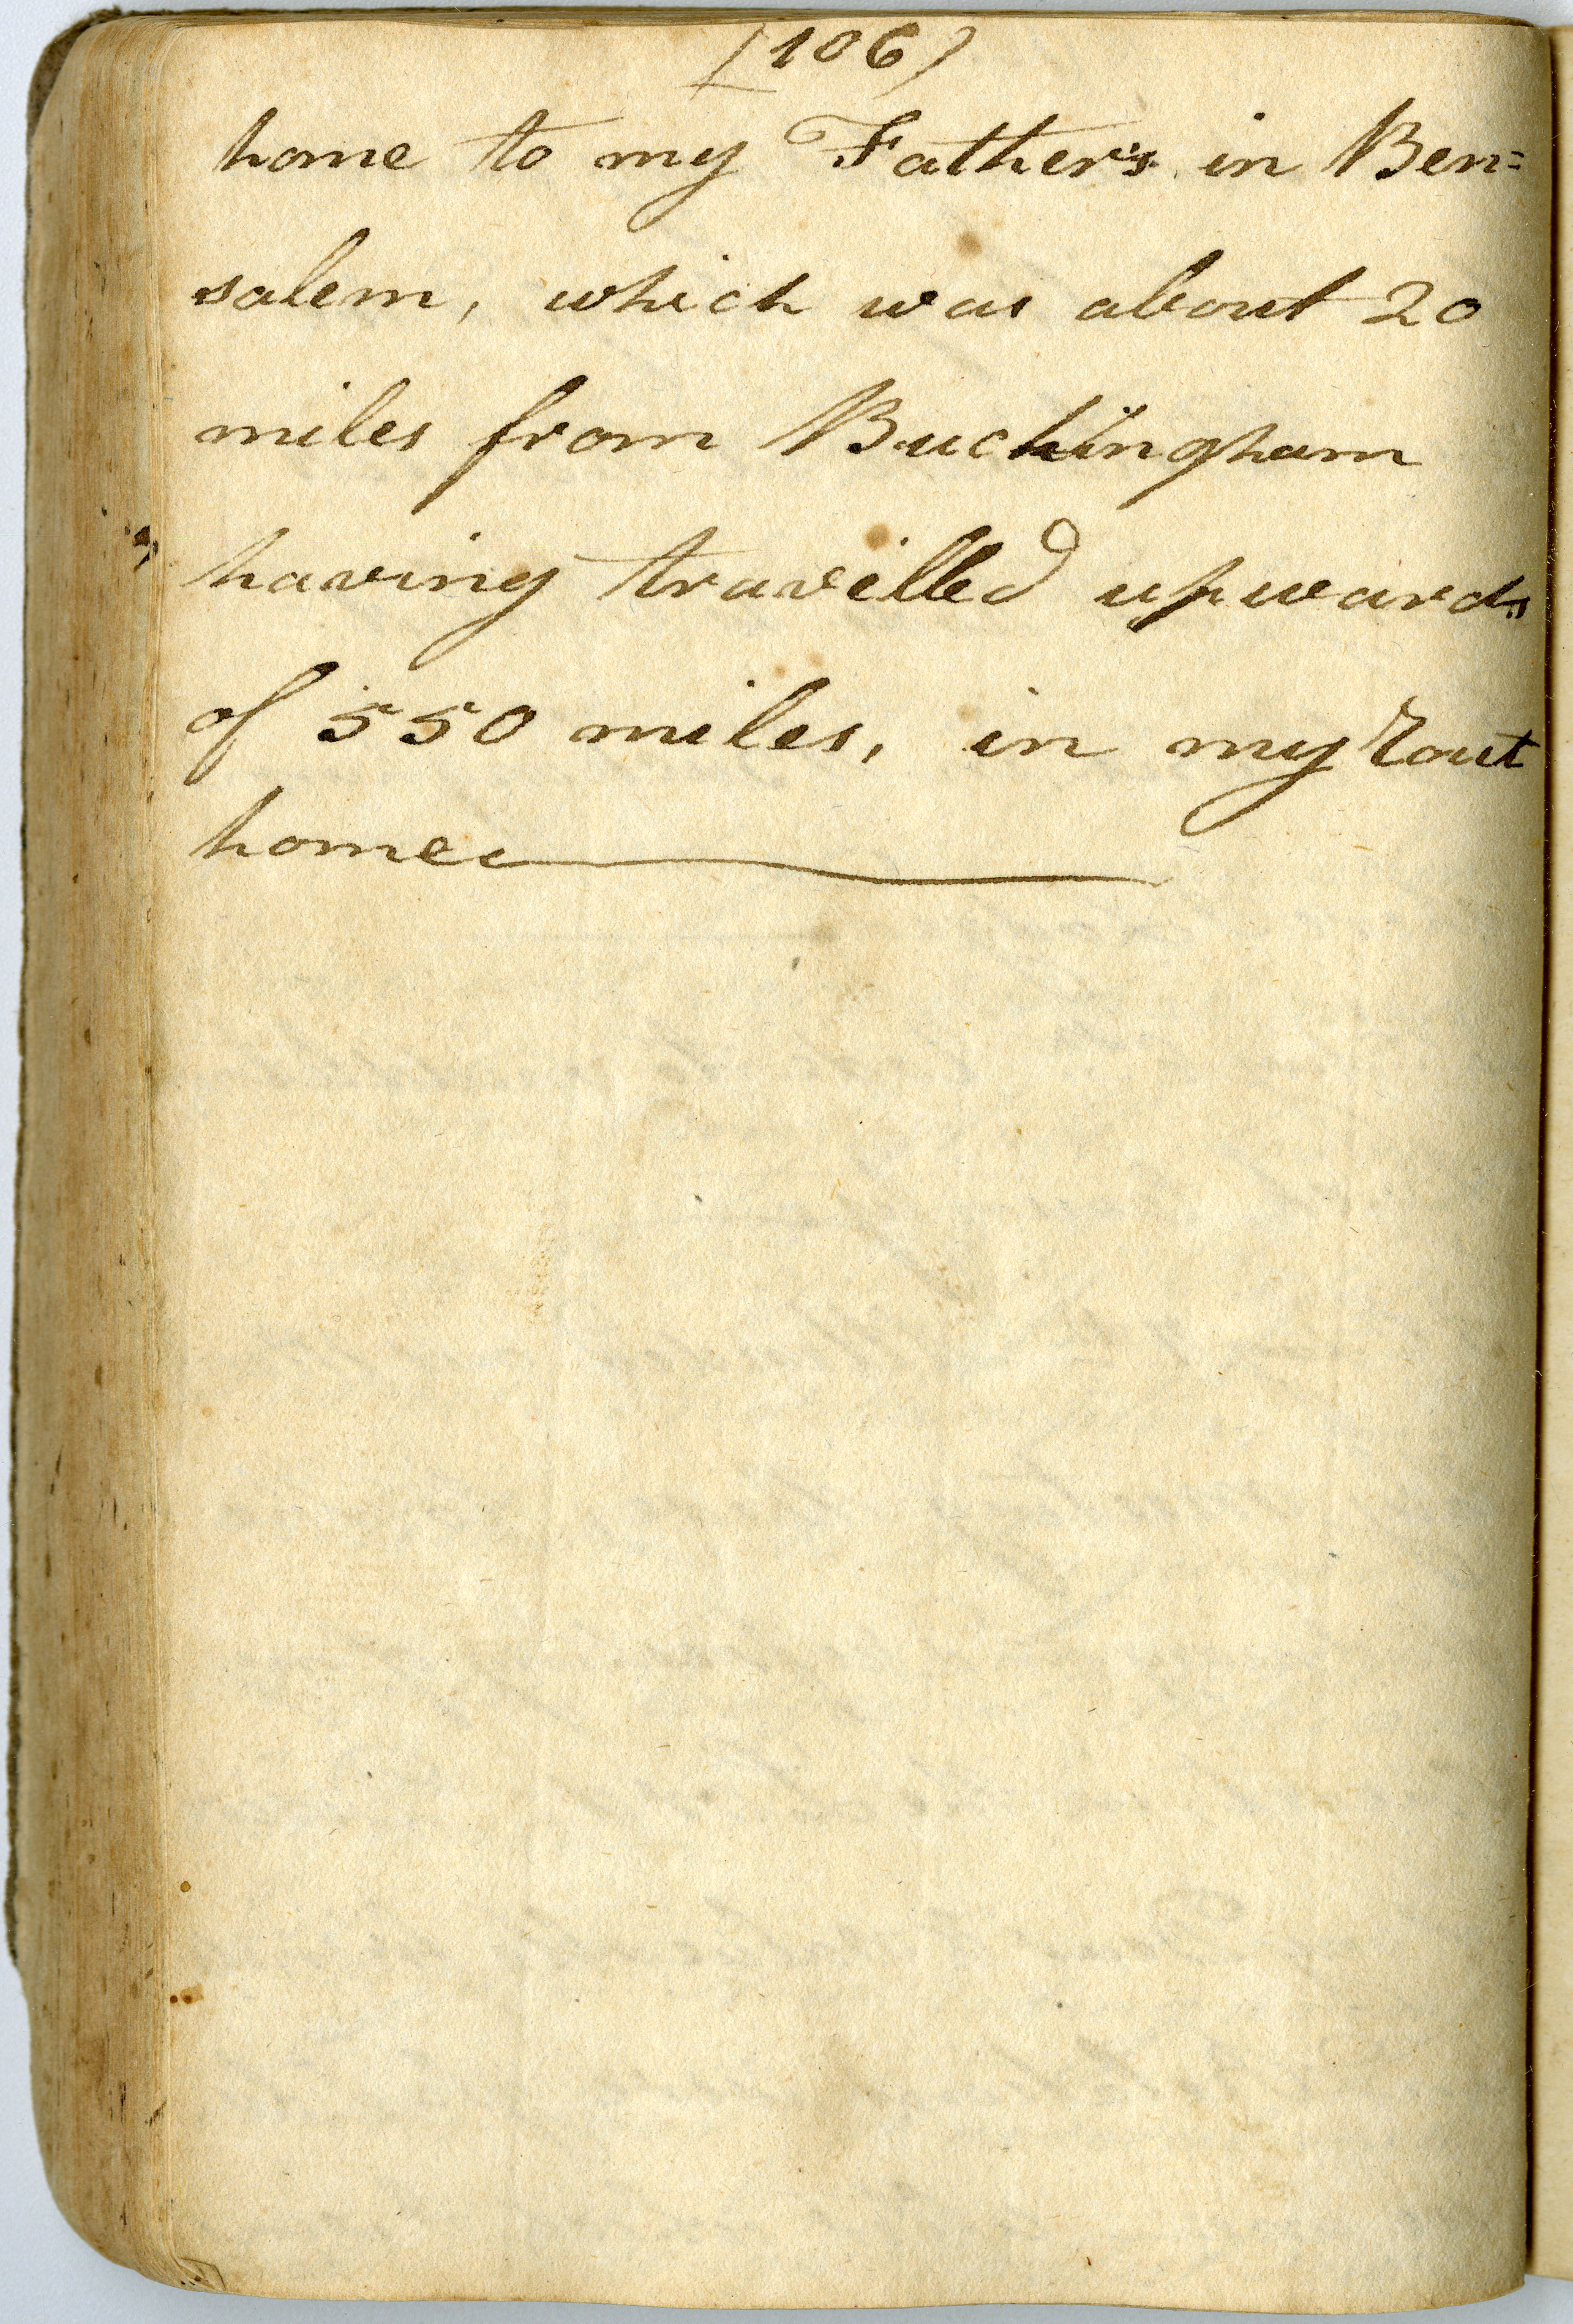 (106)
home to my Father's in Ben=
salem, which was about 20
miles from Buckingham
having travilled upwards
of 550 miles, in my rout
home